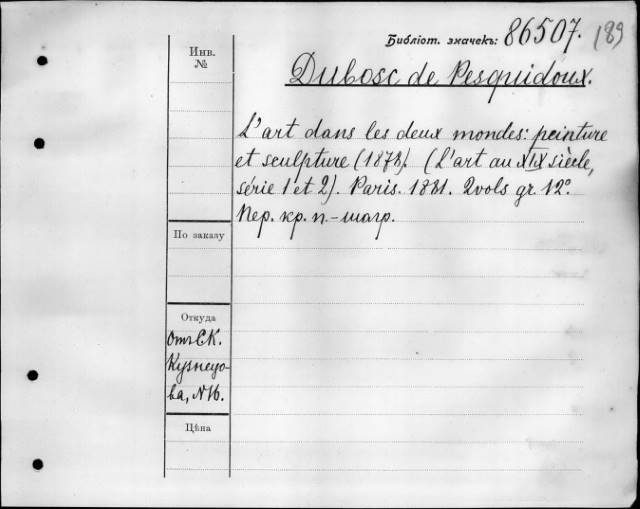 Библіот. значекъ: 86507. (89
Инв. №
Dubosc de Pesquidoux.
L'art dans les deux mondes: peinture
et sculpture (1878). (L'art au XIX siècle,
série 1 et 2). Paris. 1881. 2 vols gr. 12°.
Пер. кр. п.-шагр.
По заказу
Откуда
Отъ СК.
Кузнецо-
ва, N16.
Цѣна